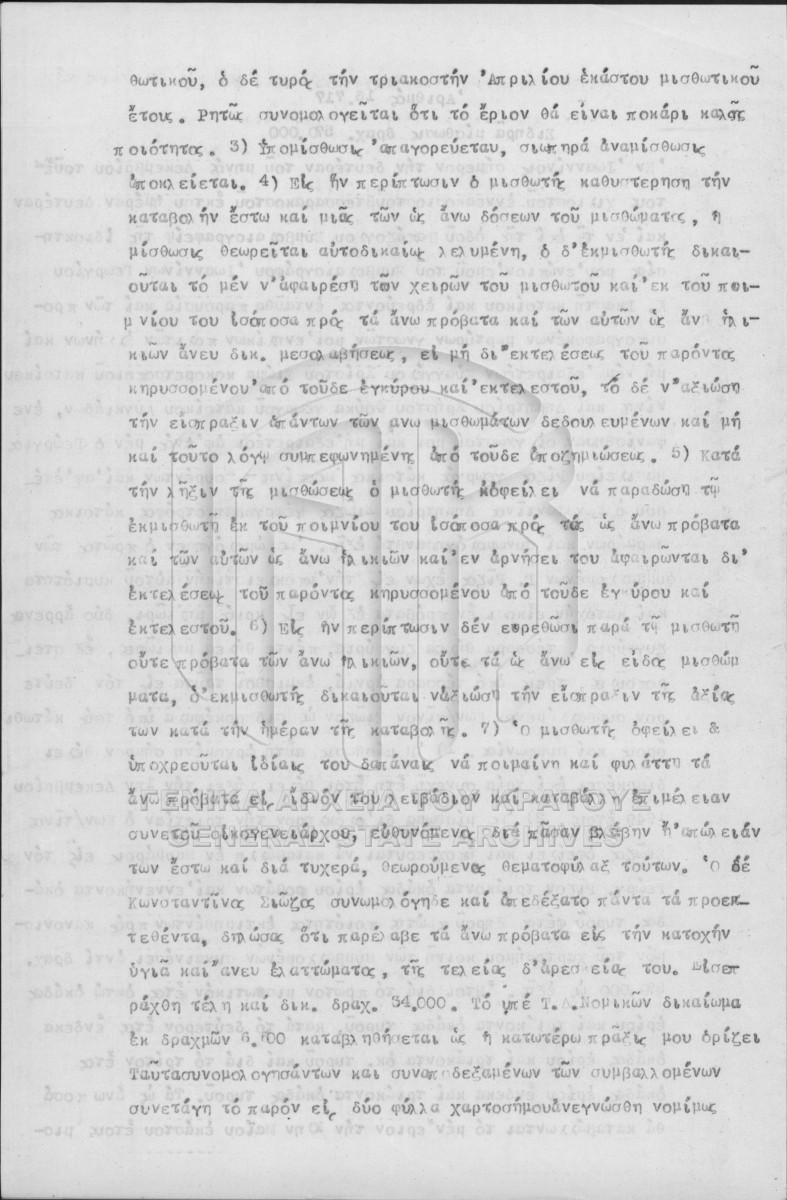 θωτικοῦ, ὁ δέ τυρός τήν τριακοστήν Ἀπριλίου ἑκάστου μισθωτικοῦ
ἔτους. Ρητῶς συνομολογεῖται ὅτι τό ἔριον θά εἶναι ποκάρι καλῆς
ποιότητος. 3) Ὑπομίσθωσις ἀπαγορεύεται, σιωπηρά ἀναμίσθωσις
ἀποκλείεται. 4) Εἰς ἥν περίπτωσιν ὁ μισθωτής καθυστερηση τήν
καταβολήν ἔστω καί μιᾶς τῶν ὡς ἄνω δόσεων τοῦ μισθώματος, ἡ
μίσθωσις θεωρεῖται αὐτοδικαίως λελυμένη, ὁ δ'ἐκμισθωτής δικαι-
οῦται τό μέν ν'ἀφαιρέση τῶν χειρῶν τοῦ μισθωτοῦ καί ἐκ τοῦ ποι-
μνίου του ἰσόποσα πρός τά ἄνω πρόβατα καί τῶν αὐτῶν ὡς ἄν ἡλι-
κιῶν ἄνευ δικ. μεσολαβήσεως, εἰ μή δι'ἐκτελέσεως τοῦ παρόντος
κηρυσσομένου ἀπό τοῦδε ἐγκύρου καί ἐκτελεστοῦ, τό δέ ν'ἀξιώση
τήν εἴσπραξιν ἁπάντων τῶν ανω μισθωμάτων δεδουλευμένων καί μή
καί τοῦτο λόγῳ συμπεφωνημένης ἀπό τοῦδε ἀποζημιώσεως. 5) Κατά
τήν λῆξιν τῆς μισθώσεως ὁ μισθωτής ὀφείλει νά παραδώση τῷ
ἐκμισθωτῆ ἐκ τοῦ ποιμνίου του ἰσόποσα πρός τάς ὡς ἄνω πρόβατα
καί τῶν αὐτῶν ὡς ἄνω ἡλικιῶν καί ἐν ἀρνήσει του ἀφαιρῶνται δι'
ἐκτελέσεως τοῦ παρόντος κηρυσσομένου ἀπό τοῦδε ἐγκύρου καί
ἐκτελεστοῦ. 6) Εἰς ἥν περίπτωσιν δέν ευρεθῶσι παρά τῷ μισθωτῆ
οὔτε πρόβατα τῶν ἄνω ἡλικιῶν, οὔτε τά ὡς ἄνω εἰς εἶδος μισθώμ
ματα, ὁ ἐκμισθωτής δικαιοῦται νἀξιώση τήν εἴσπραξιν τῆς ἀξίας
των κατά τήν ἡμέραν τῆς καταβολῆς. 7) Ὁ μισθωτής ὀφείλει &
ὑποχρεοῦται ἰδίαις του δαπάναις νά ποιμαίνη καί φυλάττη τά
ἄνω πρόβατα εἰς ἴδιόν του λειβάδιον καί καταβάλλη ἐπιμέλειαν
συνετοῦ οἰκογενειάρχου, εὐθυνόμενος διά πᾶσαν βλάβην ἤ ἀπώλειάν
των ἔστω καί διά τυχερά, θεωρούμενος θεματοφύλαξ τούτων. Ὁ δέ
Κωνσταντῖνος Σιῶζος συνωμολόγηδε καί ἀπεδέξατο πάντα τά προεκ-
τεθέντα, δηλώσας ὅτι παρέλαβε τά ἄνω πρόβατα εἰς τήν κατοχήν
ὑγιᾶ καί ἄνευ ἐλαττώματος, τῆς τελείας δ'ἀρεσκείας του. Εἰσεπ
ράχθη τέλη καί δικ. δραχ. 34.000. Τό ὑπέ Τ.Α.Νομικῶν δικαίωμα
ἐκ δραχμῶν 6.700 καταβληθήσεται ὡς ἡ κατωτέρω πρᾶξις μου ὁρίζει
Ταῦτασυνομολογησάντων και συναποδεξαμένων τῶν συμβαλλομένων
συνετάγη τό παρόν εἰς δύο φύλλα χαρτοσήμουἀνεγνώσθη νομίμως
ΓΕΝΙΚΑ ΑΡΧΕΙΑ ΤΟΥ ΚΡΑΤΟΥΣ
GENERAL STATE ARCHIVES